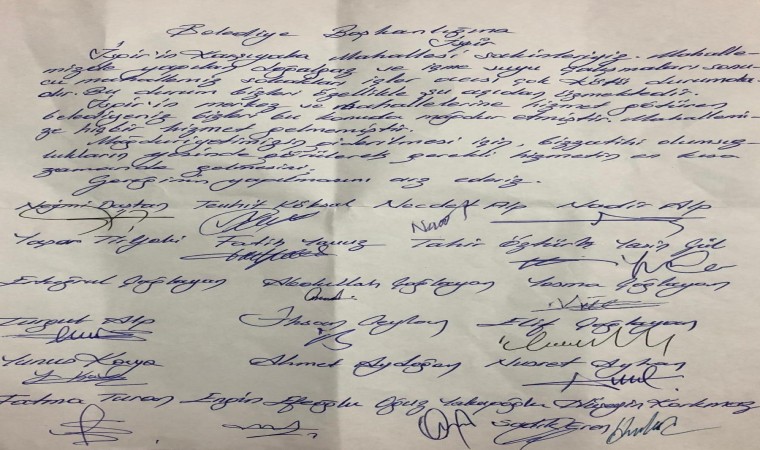 Belediye Başkanlığına
İspir
İspir'in Karşıyaka Mahallesi sakinleriyiz. Mahalle-
mizde yapılan doğalgaz ve içme suyu çalışmaları sonu-
cu mahallemiz sokakları izler acısı çok kötü durumda-
dır. Bu durum bizleri özellikle şu açıdan üzmektedir.
İspir'in merkez ve mahallelerine hizmet götüren
belediyeniz bizleri bu konuda mağdur etmiştir. Mahallemi-
ze hiçbir hizmet gelmemiştir.
Mağduriyetimizin giderilmesi için, bizzatihi olumsuz-
lukların yerinde görülerek gerekli hizmetin en kısa
zamanda gelmesini,
Gereğinin yapılmasını arz ederiz.
Necmi Dastan Tevhit Köksal Necdet Alp Nadir Alp
Yaşar Tiryaki Fatih Yavuz Tahir Öztürk Yasin Gül
Ertuğrul Çağlayan Abdullah Çağlayan Yosma Çağlayan
Turgut Alp İhsan Ceylan Elif Çağlayan
Yunus Kaya Ahmet Aydoğan Nusret Ayhan
Fatma Turan Engin Efeoğlu Oğuz Yakupoğlu Hüseyin Korkmaz
Sadık Eren